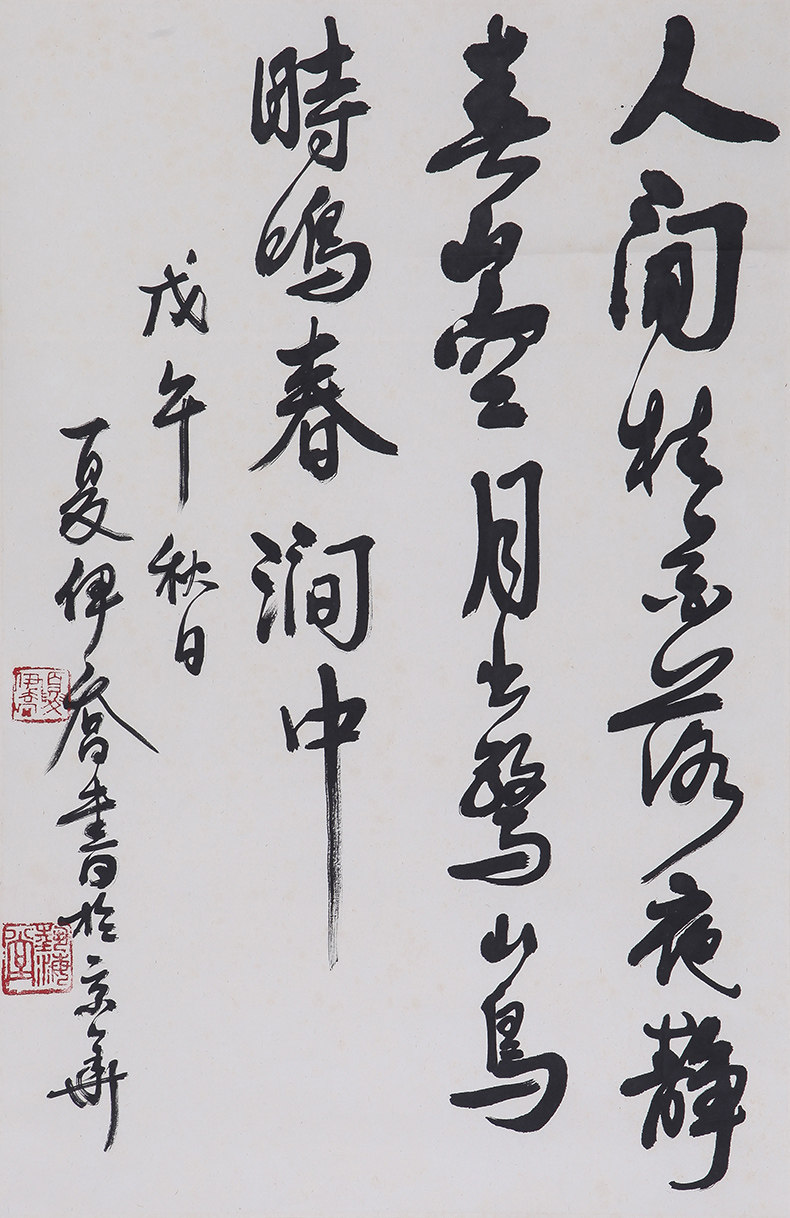 人閒桂花落夜靜
春山空月出驚山鳥
時鳴春澗中
戊午秋日
夏伊喬書於京華
夏伊喬
藝海堂